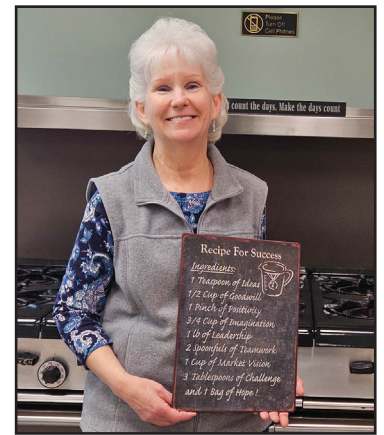 Please
Turn Off
Cell Phones
count the days, Make the days count
Recipe For Success
Ingredients:
1 Teaspoon of Ideas
1/2 Cup of Goodwill
1 Pinch of Positivity
3/4 Cup of Imagination
1 lb of Leadership
2 Spoonfuls of Teamwork
1 Cup of Market Vision
3 Tablespoons of Challenge
and 1 Bag of Hope !